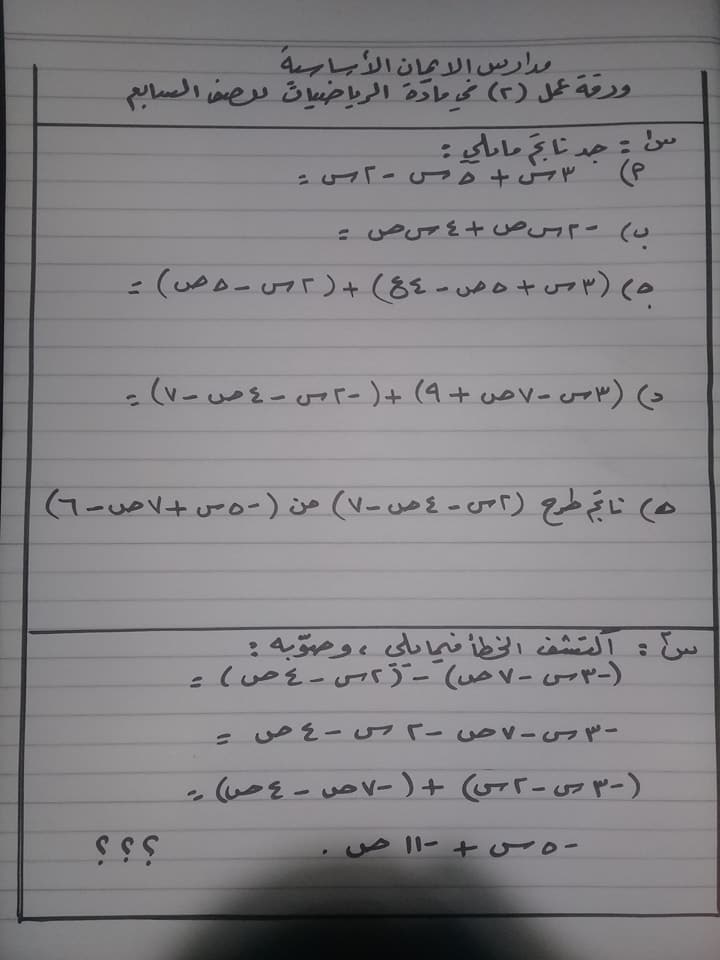 مدارس الايمان الأساسية
ورقة عمل (٢) في مادة الرياضيات للصف السابع
س١: جد ناتج مايلي:
م) ٣س + ٥س - ٢س =
ب) -٢س‌ص + ٤س‌ص =
ج) (٣س + ٥ص - ٤ع) + (٢س - ٥ص) =
د) (٣س - ٧ص + ٩) + (-٢س - ٤ص - ٧) =
ه) ناتج طرح (٢س - ٤ص - ٧) من (-٥س + ٧ص - ٦)
س٢: اكتشف الخطأ فيما يلي، وصوّبه:
(-٣س - ٧ص) - (٢س - ٤ص) =
-٣س - ٧ص - ٢س - ٤ص =
(-٣س - ٢س) + (-٧ص - ٤ص) =
-٥س + -١١ص . ؟؟؟